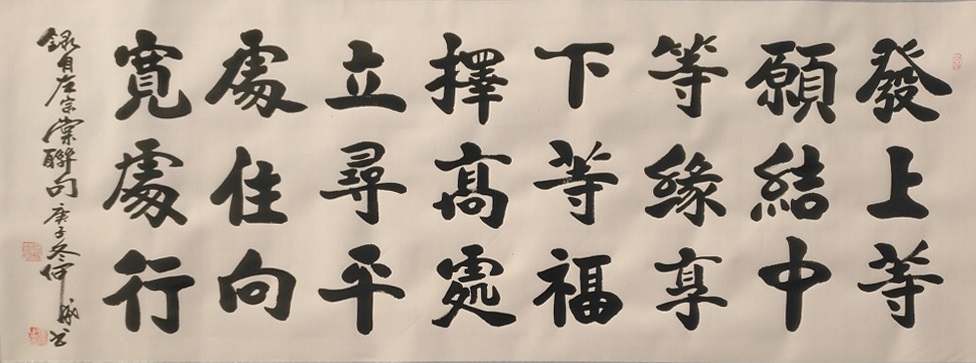 發上等
願結中
等緣享
下等福
擇高處
立尋平
處住向
寬處行
錄自左宗棠聯句 庚子冬仲